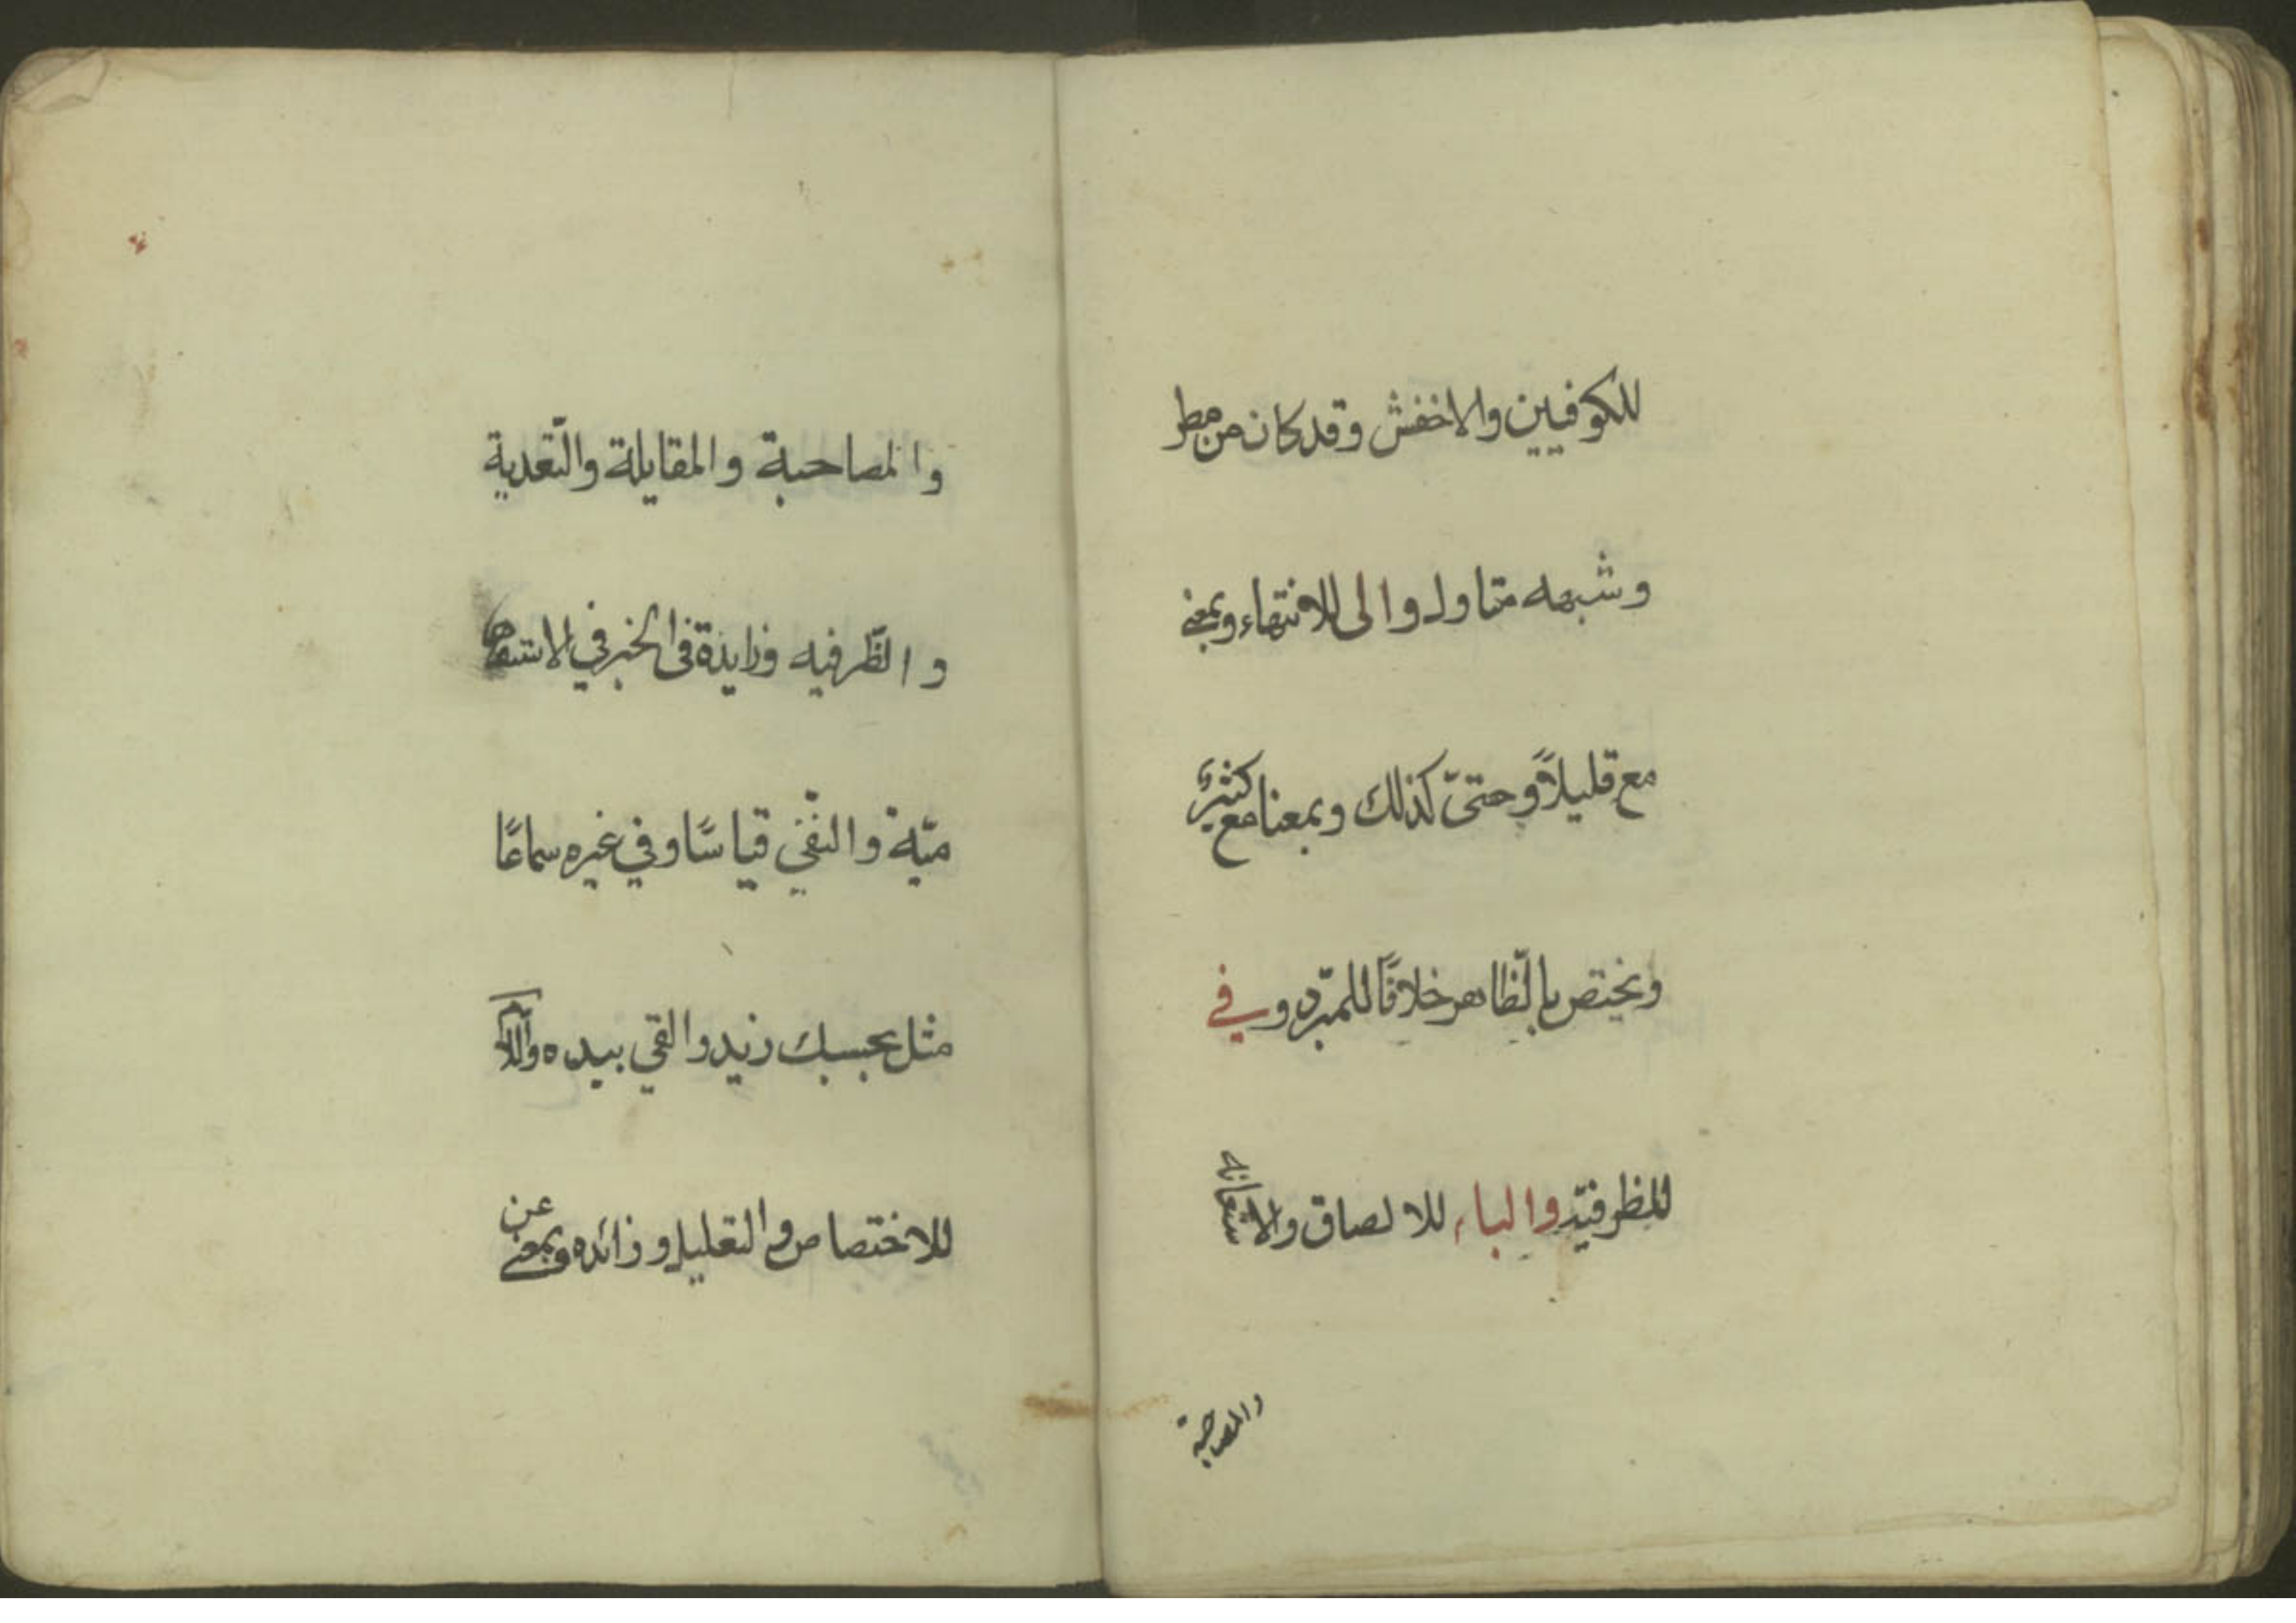 للكوفيين والاخفش وقد كان من مطر
وشبهه متاول والى للانتهاء وبمعنى
مع قليلاً وحتىّ كذلك وبمعنا مع كثيرًا
ويختص بالظّاهر خلافًا للمبرّد وفي
للظرفيّة والباء للالصاق والاستعانة
والمصاحبة
والمصاحبة والمقايلة والتّعدية
والظّرفيه وزايدة في الخبر في الاستفها
ميّة والنّفي قياسًا وفي غيره سماعًا
مثل بحسبك زيد والقي بيده واللام
للاختصاص والتعليل وزائده وبمعنى عن